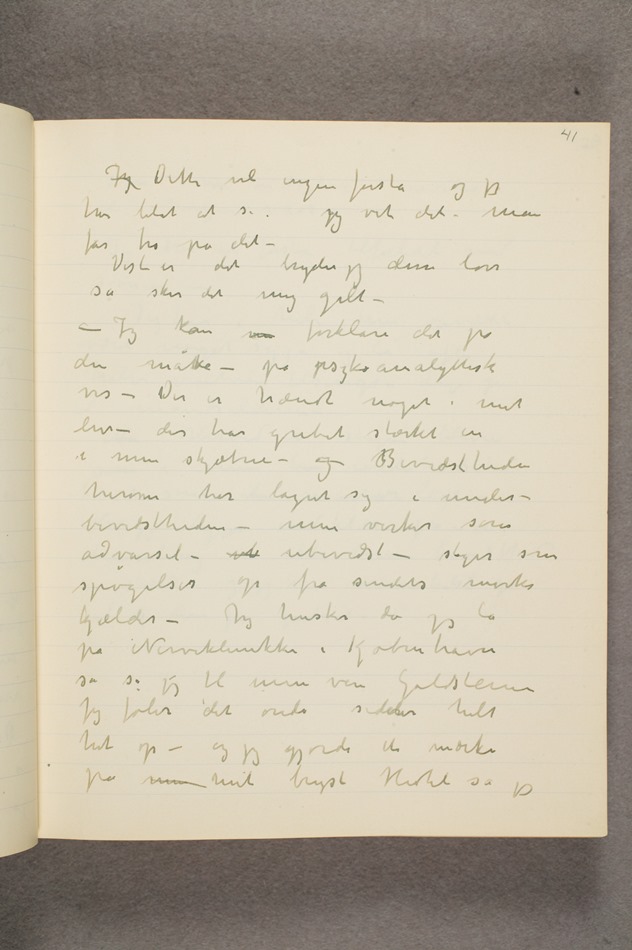 41
Jeg Dette vil ingen forstå og jeg
har ledt at si. jeg vet det. Man
får tro på det –
Vist er det bryder jeg denne lov
så sker det mig galt –
– Jeg kan forklare det på
den måtte – på psykoanalyttisk
vis – Der er hændt noget i mit
liv – der har grebet stærkt in
i min skjæbne – og Bevidstheden
herom har lagret sig i under-
bevidstheden – men virker som
advarsel – ubevidst – stiger som
spøgelser op fra sindets mørke
kjælder – Jeg husker da jeg lå
på Nerveklinikken i Kjøbenhavn
så sa jeg til min ven Goldstein
Jeg føler det onde sidder helt
her op – og jeg gjorde et mærke
på min mit bryst Hertil sa jeg